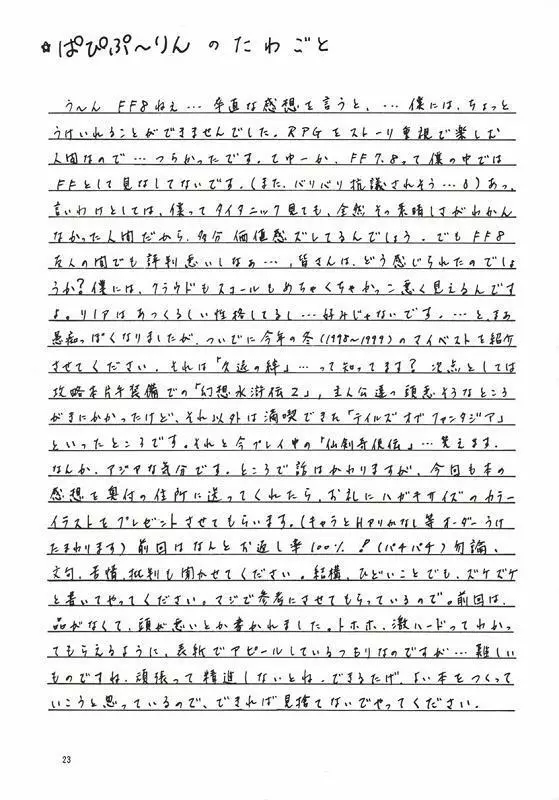 ☆ぱぴぷ〜りんのたわごと
う〜ん FF8ねぇ… 率直な感想を言うと、… 僕には、ちょっと
うけいれることができませんでした。RPGをストーリ重視で楽しむ
人間なので… つらかったです。てゆーか、FF7.8って僕の中では
FFとして見なしてないです。(また、バリバリ抗議されそう…) あっ、
言いわけとしては、僕ってタイタニック見ても、全然その素晴しさがわかん
なかった人間だから、多分価値感ズレてるんでしょう。でもFF8
友人の間でも評判悪いしなぁ…, 皆さんは、どう感じられたのでしょ
うか?僕には、クラウドもスコールもめちゃくちゃかっこ悪く見えるんです
よ。リノアはあつくるしい性格してるし…好みじゃないです。…と、まあ
愚痴っぽくなりましたが、ついでに今年の冬(1998〜1999)のマイベストを紹介
させてください。それは「久遠の絆」…って知ってます? 次点としては
攻略本片手装備での「幻想水滸伝2」, 主人公達の頭悪そうなところ
がきにかかったけど、それ以外は満喫できた「テイルズオブファンタジア」
といったところです。それと今プレイ中の「仙剣奇侠伝」…笑えます。
なんか、アジアな気分です。ところで話はかわりますが、今回も本の
感想を奥付の住所に送ってくれたら、お礼にハガキサイズのカラー
イラストをプレゼントさせてもらいます。(キャラとHアリかなし等オーダーうけ
たまわります) 前回はなんとお返し率100%!(パチパチ) 勿論、
文句、苦情、批判も聞かせてください。結構、ひどいことでも、ズケズケ
と書いてやってください。マジで参考にさせてもらっているので。前回は、
品がなくて、頭が悪いとか書かれました。トホホ、激ハードってわかっ
てもらえるように、表紙でアピールしているつもりなのですが…難しい
ものですね。頑張って精進しないとね。できるだけ、よい本をつくって
いこうと思っているので、できれば見捨てないでやってください.
23